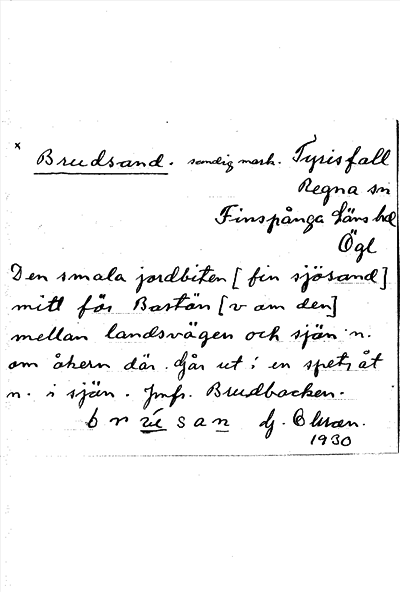 x Brudsand. sandig mark. Tyrisfall
Regna sn
Finspånga läns hd
Ögl
Den smala jordbiten [fin sjösand]
mitt för Bastön [v om den]
mellan landsvägen och sjön n.
om åkern där. Går ut i en spets åt
n. i sjön. Jmfr. Brudbacken.
brúsan
1930